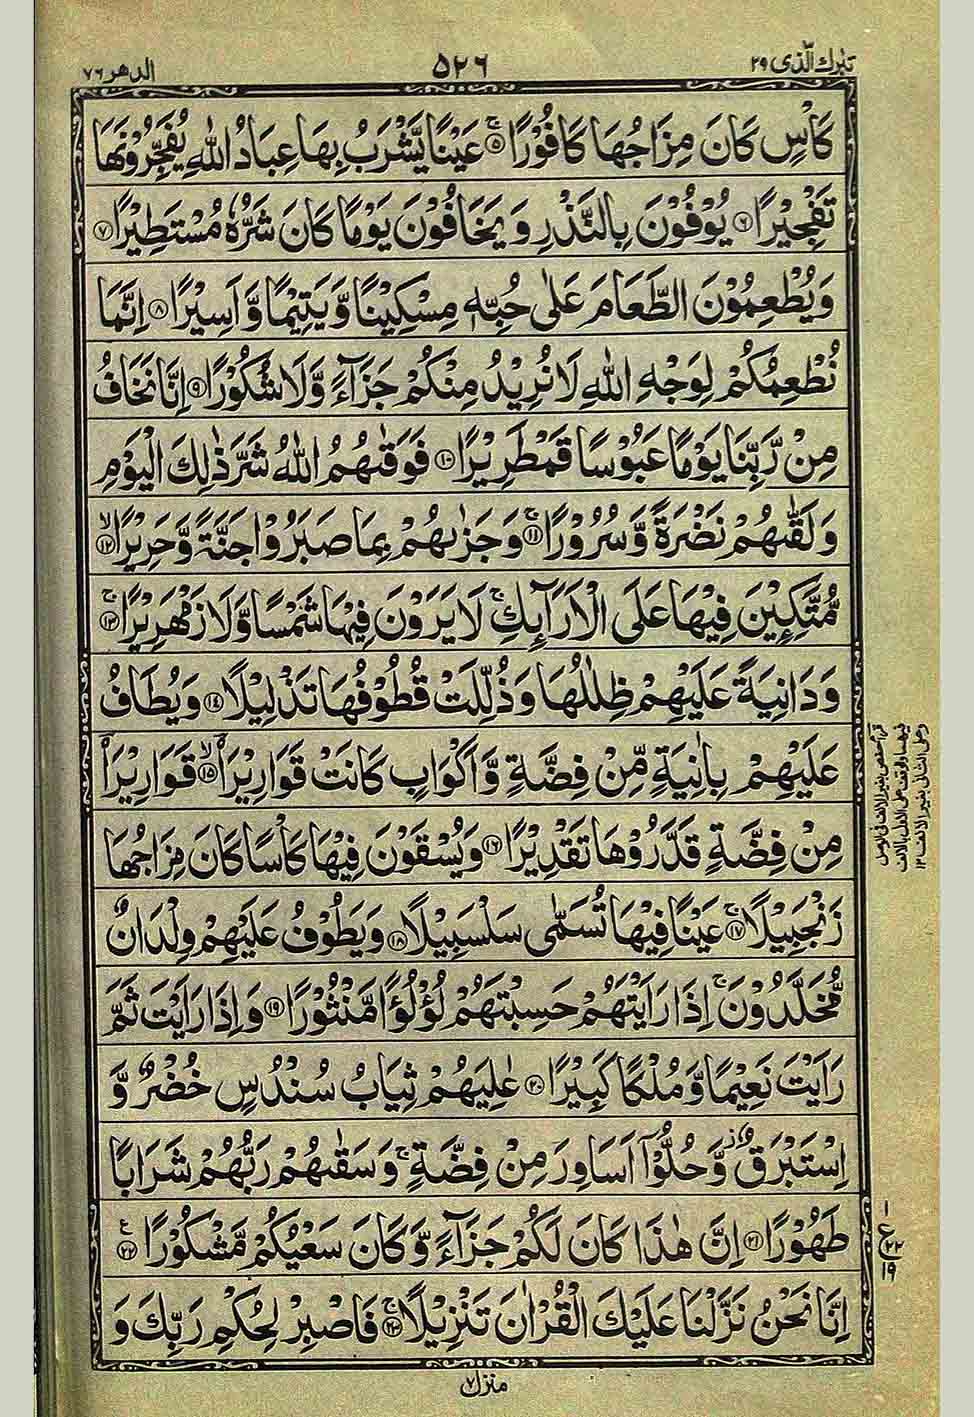 تبٰرك الّذی ۲۹
۵۲۶
الدهر ۷۶
كَاْسٍ كَانَ مِزَاجُهَا كَافُوْرًا ۚ﴿۵﴾ عَيْنًا يَّشْرَبُ بِهَا عِبَادُ اللّٰهِ يُفَجِّرُوْنَهَا
تَفْجِيْرًا ﴿۶﴾ يُوْفُوْنَ بِالنَّذْرِ وَ يَخَافُوْنَ يَوْمًا كَانَ شَرُّهٗ مُسْتَطِيْرًا ﴿۷﴾
وَ يُطْعِمُوْنَ الطَّعَامَ عَلٰى حُبِّهٖ مِسْكِيْنًا وَّ يَتِيْمًا وَّ اَسِيْرًا ﴿۸﴾ اِنَّمَا
نُطْعِمُكُمْ لِوَجْهِ اللّٰهِ لَا نُرِيْدُ مِنْكُمْ جَزَآءً وَّ لَا شُكُوْرًا ﴿۹﴾ اِنَّا نَخَافُ
مِنْ رَّبِّنَا يَوْمًا عَبُوْسًا قَمْطَرِيْرًا ﴿۱۰﴾ فَوَقٰىهُمُ اللّٰهُ شَرَّ ذٰلِكَ الْيَوْمِ
وَ لَقّٰىهُمْ نَضْرَةً وَّ سُرُوْرًا ۚ﴿۱۱﴾ وَ جَزٰىهُمْ بِمَا صَبَرُوْا جَنَّةً وَّ حَرِيْرًا ۙ﴿۱۲﴾
مُّتَّكِـِٕيْنَ فِيْهَا عَلَى الْاَرَآىِٕكِ ۚ لَا يَرَوْنَ فِيْهَا شَمْسًا وَّ لَا زَمْهَرِيْرًا ۚ﴿۱۳﴾
وَ دَانِيَةً عَلَيْهِمْ ظِلٰلُهَا وَ ذُلِّلَتْ قُطُوْفُهَا تَذْلِيْلًا ﴿۱۴﴾ وَ يُطَافُ
عَلَيْهِمْ بِاٰنِيَةٍ مِّنْ فِضَّةٍ وَّ اَكْوَابٍ كَانَتْ قَوَارِيْرَا۠ ۙ﴿۱۵﴾ قَوَارِيْرَا۠
مِنْ فِضَّةٍ قَدَّرُوْهَا تَقْدِيْرًا ﴿۱۶﴾ وَ يُسْقَوْنَ فِيْهَا كَاْسًا كَانَ مِزَاجُهَا
زَنْجَبِيْلًا ۚ﴿۱۷﴾ عَيْنًا فِيْهَا تُسَمّٰى سَلْسَبِيْلًا ﴿۱۸﴾ وَ يَطُوْفُ عَلَيْهِمْ وِلْدَانٌ
مُّخَلَّدُوْنَ ۚ اِذَا رَاَيْتَهُمْ حَسِبْتَهُمْ لُؤْلُؤًا مَّنْثُوْرًا ﴿۱۹﴾ وَ اِذَا رَاَيْتَ ثَمَّ
رَاَيْتَ نَعِيْمًا وَّ مُلْكًا كَبِيْرًا ﴿۲۰﴾ عٰلِيَهُمْ ثِيَابُ سُنْدُسٍ خُضْرٌ وَّ
اِسْتَبْرَقٌ ؗ وَّ حُلُّوْۤا اَسَاوِرَ مِنْ فِضَّةٍ ۚ وَ سَقٰىهُمْ رَبُّهُمْ شَرَابًا
طَهُوْرًا ﴿۲۱﴾ اِنَّ هٰذَا كَانَ لَكُمْ جَزَآءً وَّ كَانَ سَعْيُكُمْ مَّشْكُوْرًا ﴿۲۲﴾ ع
اِنَّا نَحْنُ نَزَّلْنَا عَلَيْكَ الْقُرْاٰنَ تَنْزِيْلًا ۚ﴿۲۳﴾ فَاصْبِرْ لِحُكْمِ رَبِّكَ وَ
۱
ع
۲۲
۱۹
منزل ۷